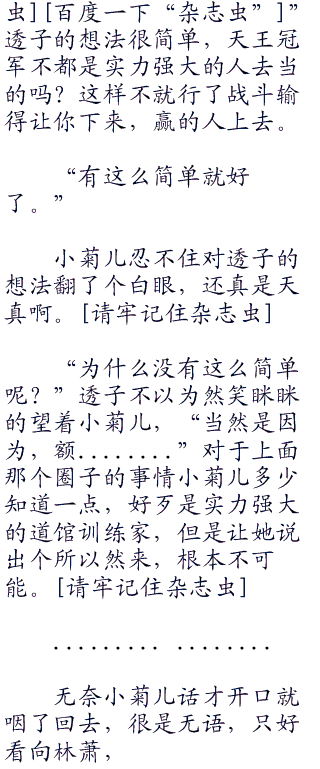 虫][百度一下“杂志虫”]”
透子的想法很简单，天王冠
军不都是实力强大的人去当
的吗？这样不就行了战斗输
得让你下来，赢的人上去。
“有这么简单就好
了。”
小菊儿忍不住对透子的
想法翻了个白眼，还真是天
真啊。[请牢记住杂志虫]
“为什么没有这么简单
呢？”透子不以为然笑眯眯
的望着小菊儿，“当然是因
为，额........”对于上面
那个圈子的事情小菊儿多少
知道一点，好歹是实力强大
的道馆训练家，但是让她说
出个所以然来，根本不可
能。[请牢记住杂志虫]
......... ........
无奈小菊儿话才开口就
咽了回去，很是无语，只好
看向林萧，